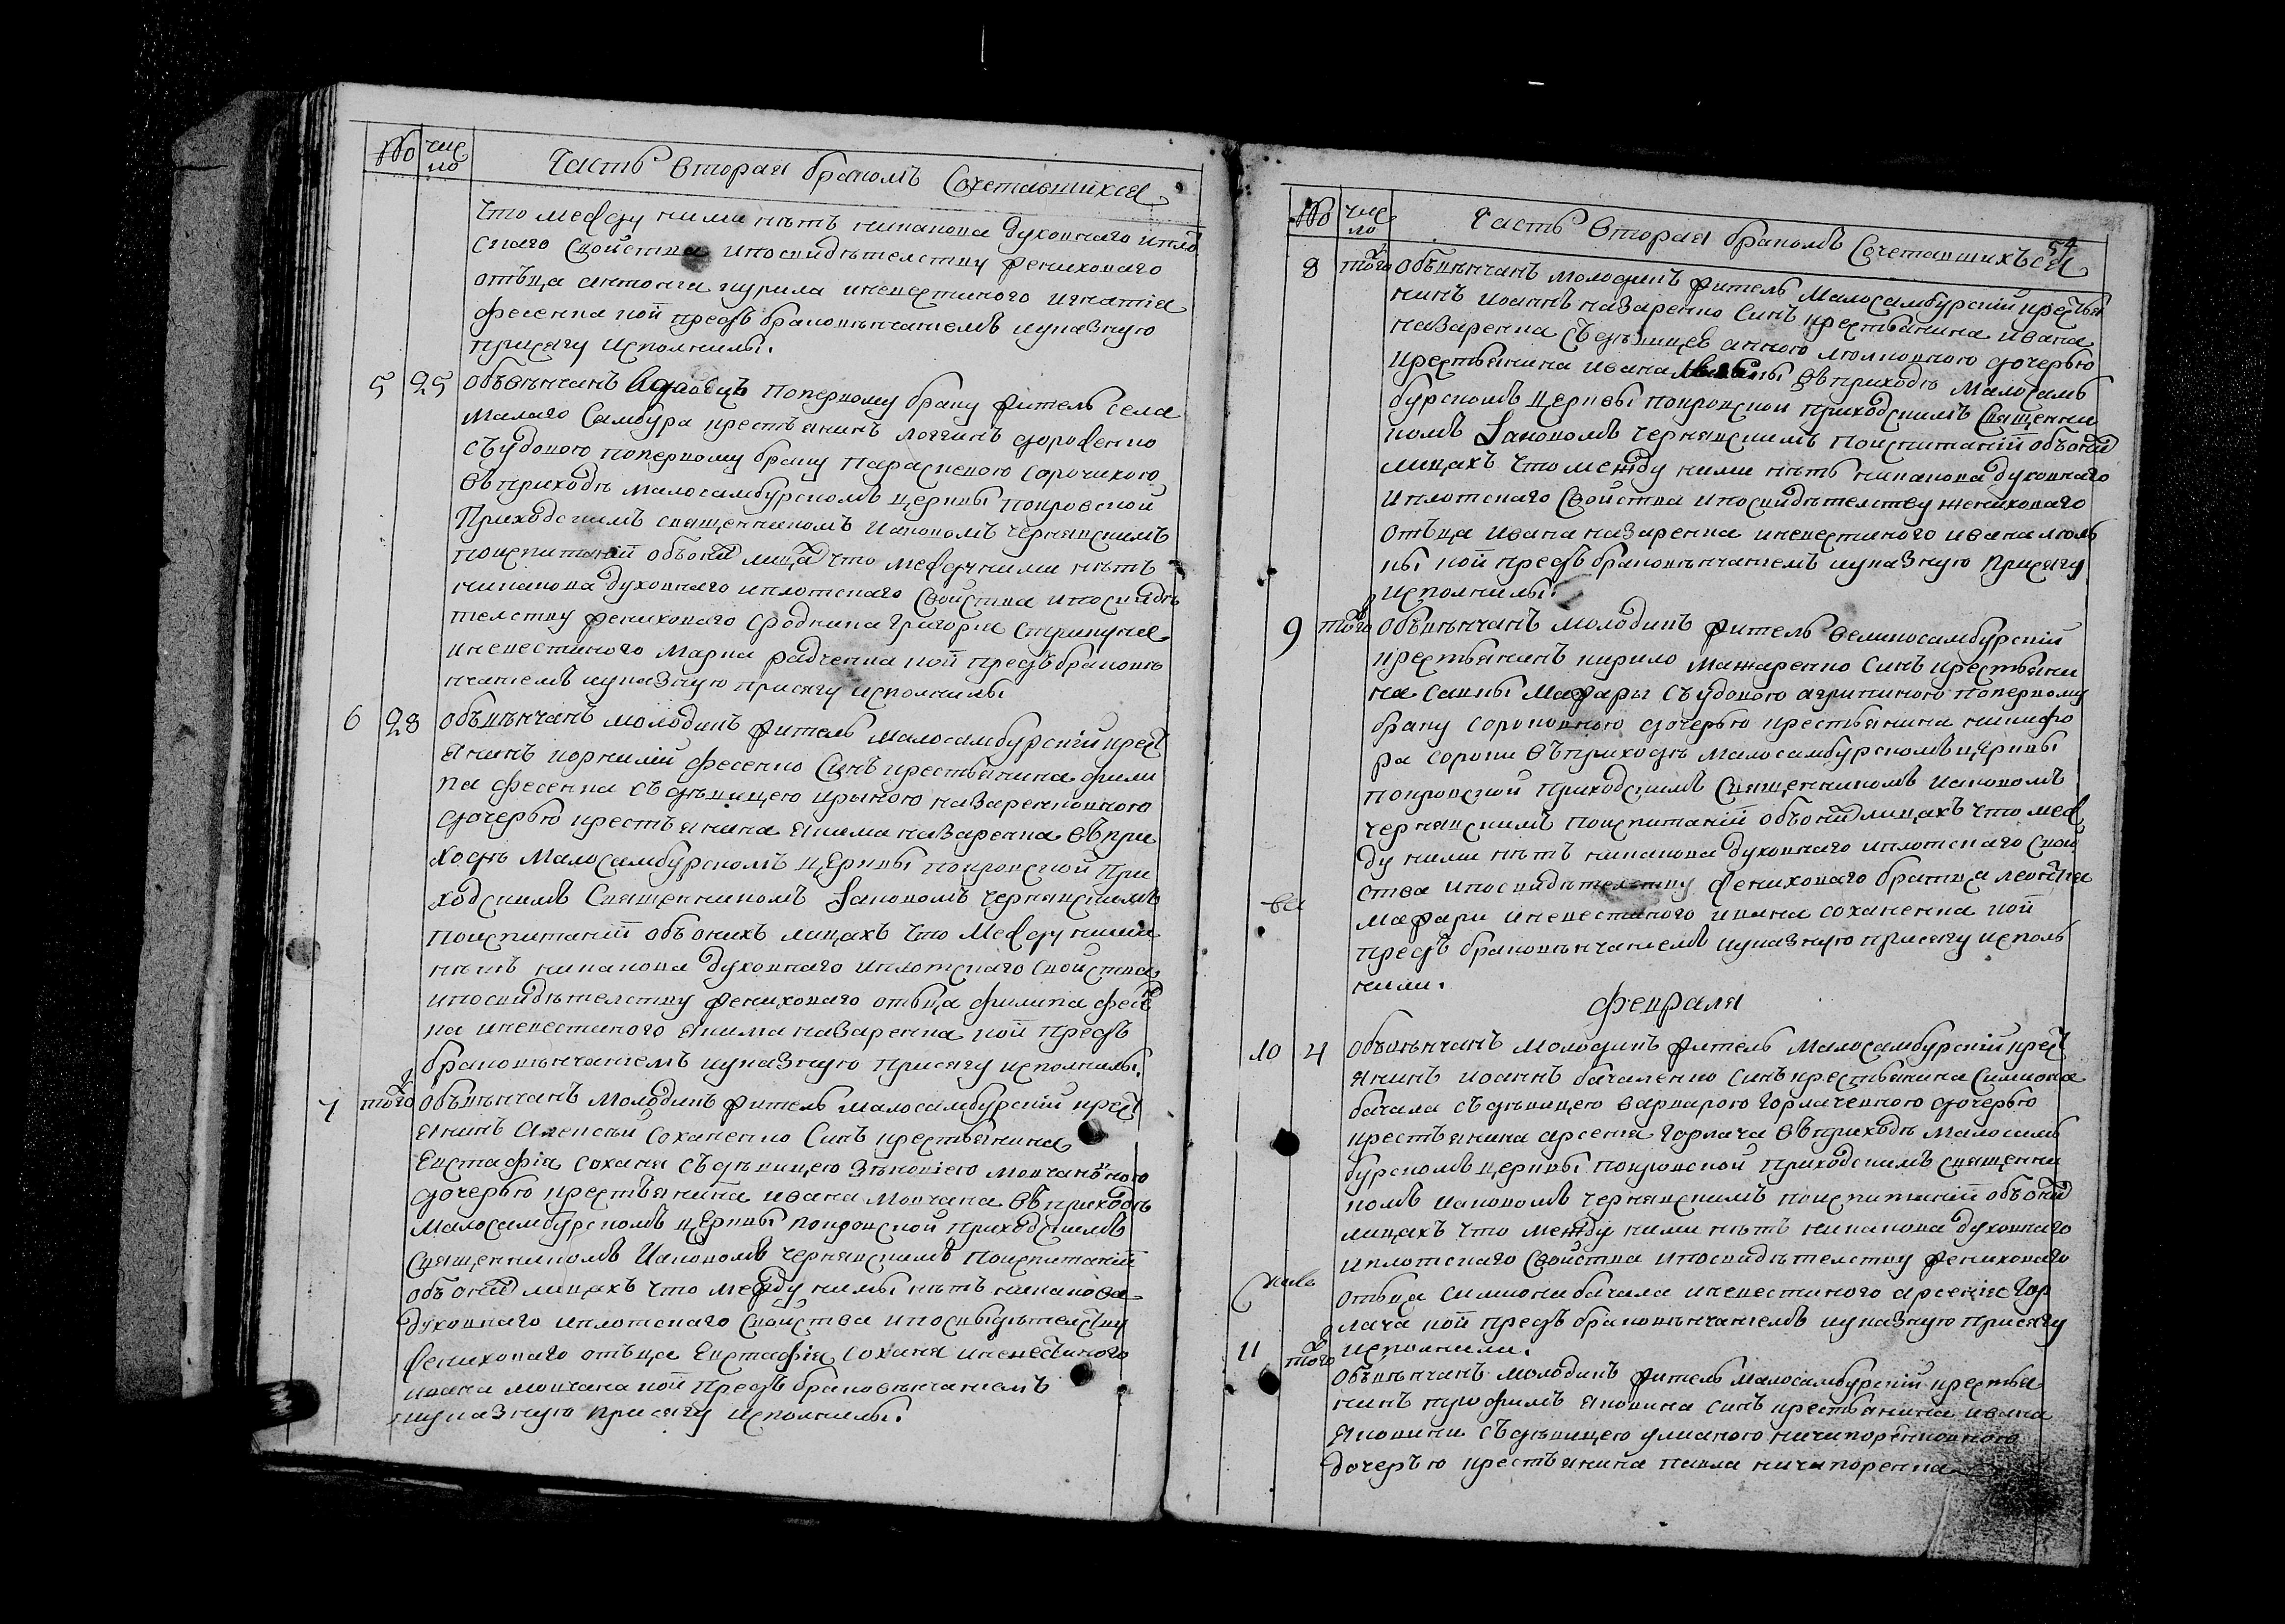 № чис
ло
Часть вторая бракомъ Сочетавшихся
Что между ними нѣтъ никакова духовнаго и пло
скаго Свойства и посвидѣтелству жениховаго
отъца антонія гурила иневестиного игнатія
фесенка кой предъ браковѣнчаніемъ иуказную
присягу исполнилы.
5 25 Объвѣнчанъ Вдовецъ поперному браку житель села
Малаго Самбура крестьянинъ логгинъ дорошенко
съудовою поперному браку параскевою сорочихою
въприходѣ малосамбурскомъ церквы покровской
Приходскимъ священникомъ Иаковомъ чернявскимъ
поиспитаніи объоній лица что между ними нѣтъ
никакова духовнаго иплотскаго Свойства ипосвидѣ
телству жениховаго сродника григорія стрикуна
иневестиного Марка радченка кой предъ браковѣ
нчаніемъ иуказную присягу исполнилы
6 28 Объвѣнчанъ молодикъ житель малосамбурскій крест
янинъ корнилій фесенко Синъ крестьянина фили
па фесенка съдѣвицею ириною назаренковною
дочерью крестьянина якима назаренка въпри
ходѣ Малосамбурскомъ церквы покровской При
ходскимъ Священникомъ Іаковомъ чернявскимъ
поиспитаніи объ онихъ лицахъ что между ними
нѣтъ никакова духовнаго иплотскаго свойства
ипосвидѣтелству жениховаго отъца филипа фесе
ка иневестиного якима назаренка кой предъ
браковѣнчаніемъ иуказную присягу исполнилы.
7 того Объвѣнчанъ Молодикъ житель малосамбурскій крест
янинъ Алексѣй Соханенко Синъ крестьянина
Евстафія соханя съдѣвицею зѣновіею мовчановною
дочерью крестьянина ивана Мовчана въприходѣ
Малосамбурскомъ церквы покровской приходскимъ
Священникомъ Иаковомъ чернявскимъ Поиспитаній
объ оній лицахъ что между нимы нѣтъ никакова
духовнаго иплотскаго свойства ипосвыдѣтелству
жениховаго отъца Евстафія соханя иневестиного
ивана мовчана кой предъ браковѣнчаніемъ
иуказную присягу исполнилы.
№ чис
ло
Часть вторая бракомъ Сочетавшихъся
54
8 того Объвѣнчанъ молодикъ житель Малосамбурскій крестья
нинъ иоаннъ назаренко Синъ крестьянина ивана
назаренка съдѣвицею анною люлковною дочерью
крестьянина ивана въприходѣ малосамъ
бурскомъ церквы покровской приходскимъ Священни
комъ Іаковомъ чернявскимъ поиспитаній объоній
лицахъ что между ними нѣтъ никакова духовнаго
иплотскаго Свойства ипосвидѣтелству жениховаго
отъца ивана назаренка иневестиного ивана люль
кы кой предъ браковѣнчаніемъ иуказную присягу
исполнилы.
9 того Объвѣнчанъ молодикъ житель великосамбурскій
крестьянинъ кирило мажаренко Синъ крестьяни
на савы мажары съудовою агрипиною поперному
браку сороковною дочерью крестьянина никифо
ра сороки въприходѣ малосамбурскомъ церквы
покровской приходскимъ Священникомъ иаковомъ
чернявскимъ поиспитаній объоній лицахъ что меж
ду ними нѣтъ никакова духовнаго иплотскаго свой
ства ипосвидѣтелству жениховаго братца леонтія
мажари иневестиного ивана соханенка кой
предъ браковѣнчаніемъ иуказную присягу исполь
нили.
февраля
10 4 Объвѣнчанъ молодикъ житель малосамбурскій крест
янинъ иоаннъ бачаленко синъ крестьянина симиона
бачала съдѣвицею варварою горлаченкою дочерью
крестьянина арсенія горлача въприходѣ малосам
бурскомъ церквы покровской приходскимъ священни
комъ иаковомъ чернявскимъ поиспитаній объоній
лицахъ что между ними нѣтъ никакова духовнаго
иплотскаго Свойства ипосвидѣтелству жениховаго
отъца симиона бачала иневестиного арсенія Гор
лача кой предъ браковѣнчаніемъ иуказную присягу
исполнили.
11 того Объвѣнчанъ молодикъ житель малосамбурскій крестья
нинъ трофимъ яковина синъ крестьянина ивана
яковини съдѣвицею улианою ничипоренковною
дочерью крестьянина павла ничипоренка